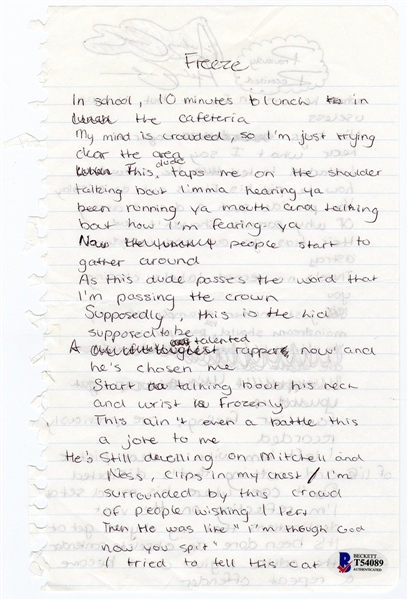 Freeze
In school, 10 minutes to lunch in
the cafeteria
My mind is crowded, so I'm just trying
clear the area
This dude taps me on the shoulder
talking bout I'mma hearing ya
been running ya mouth and talking
bout how I'm fearing ya
people start to
gather around
As this dude passes the word that
I'm passing the crown
Supposedly, this is the kid
supposed to be
A talented rapper, now and
he's chosen me
Start talking bout his neck
and wrist Frozenly
This ain't even a battle this
a joke to me
He's Still dwelling on Mitchell and
Ness, clips in my chest / I'm
surrounded by this crowd
of people wishing
Then He was like "I'm though God
now you spit"
I tried to tell this cat
BECKETT
T54089
AUTHENTICATED